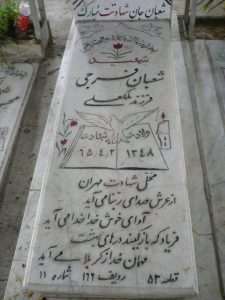 شعبان جان شهادتت مبارک
شهید
شعبان فرجی
فرزند
ولادت شهادت
۱۳۴۸ ۶۵/۴/۳
محل شهادت مهران
از عرش صدای ربنا می آید
آوای خوش خدا خدا می آید
فریاد که باز کنید درهای بهشت
مهمان خدا ز کربلا می آید
قطعه ۵۳ ردیف ۱۶۶ شماره ۱۱